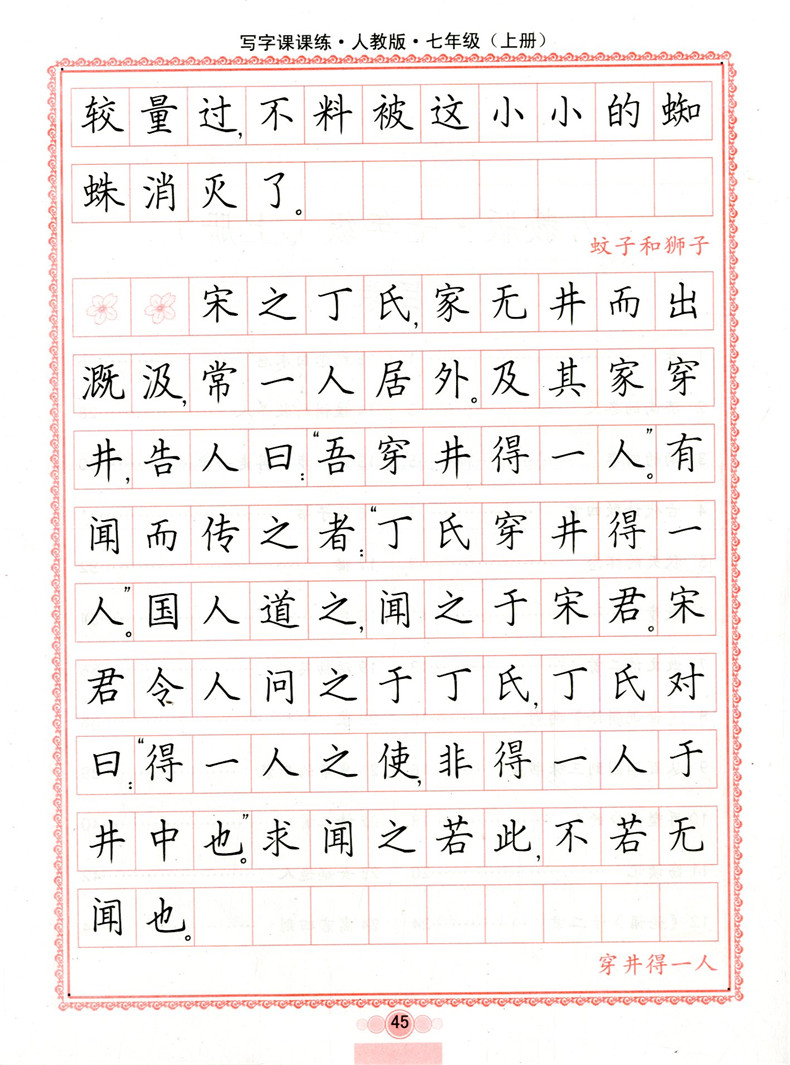 写字课课练·人教版·七年级（上册）
较量过，不料被这小小的蜘
蛛消灭了。
蚊子和狮子
宋之丁氏，家无井而出
溉汲，常一人居外。及其家穿
井，告人曰：“吾穿井得一人”有
闻而传之者：“丁氏穿井得一
人”。国人道之，闻之于宋君。宋
君令人问之于丁氏，丁氏对
曰：“得一人之使，非得一人于
井中也”。求闻之若此，不若无
闻也。
穿井得一人
45